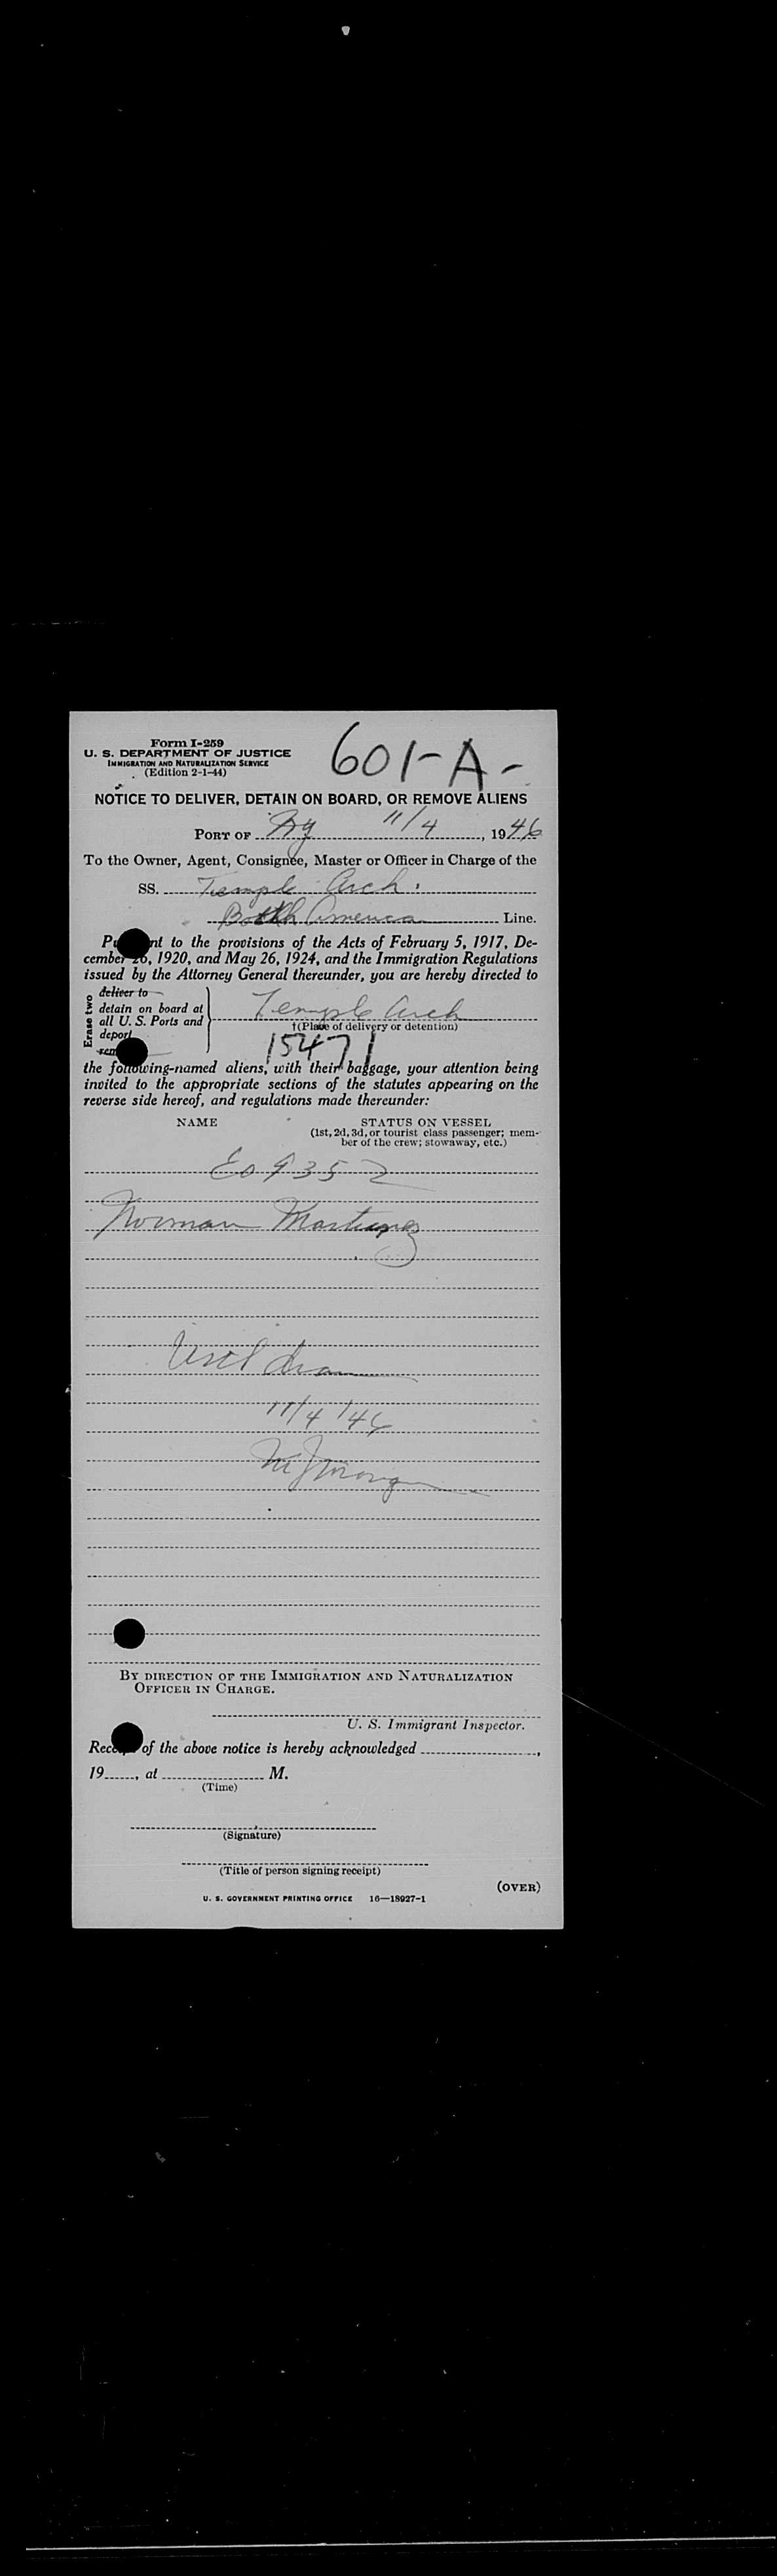 Form I-259
U. S. DEPARTMENT OF JUSTICE
IMMIGRATION AND NATURALIZATION SERVICE
(Edition 2-1-44)
601-A-
NOTICE TO DELIVER, DETAIN ON BOARD, OR REMOVE ALIENS
PORT OF Ny 11/4, 1946
To the Owner, Agent, Consignee, Master or Officer in Charge of the
SS. Temple Arch
America Line.
nt to the provisions of the Acts of February 5, 1917, De-
cember 26, 1920, and May 26, 1924, and the Immigration Regulations
issued by the Attorney General thereunder, you are hereby directed to
Erase two
deliver to
detain on board at
all U. S. Ports and
deport
Temple Arch
†(Place of delivery or detention)
15471
the following-named aliens, with their baggage, your attention being
invited to the appropriate sections of the statutes appearing on the
reverse side hereof, and regulations made thereunder:
NAME STATUS ON VESSEL
(1st, 2d, 3d, or tourist class passenger; mem-
ber of the crew; stowaway, etc.)
EO 9352
Norman Martinez
11/4/46
BY DIRECTION OF THE IMMIGRATION AND NATURALIZATION
OFFICER IN CHARGE.
U. S. Immigrant Inspector.
of the above notice is hereby acknowledged ,
19 , at M.
(Time)
(Signature)
(Title of person signing receipt)
(OVER)
U. S. GOVERNMENT PRINTING OFFICE 16—18927-1